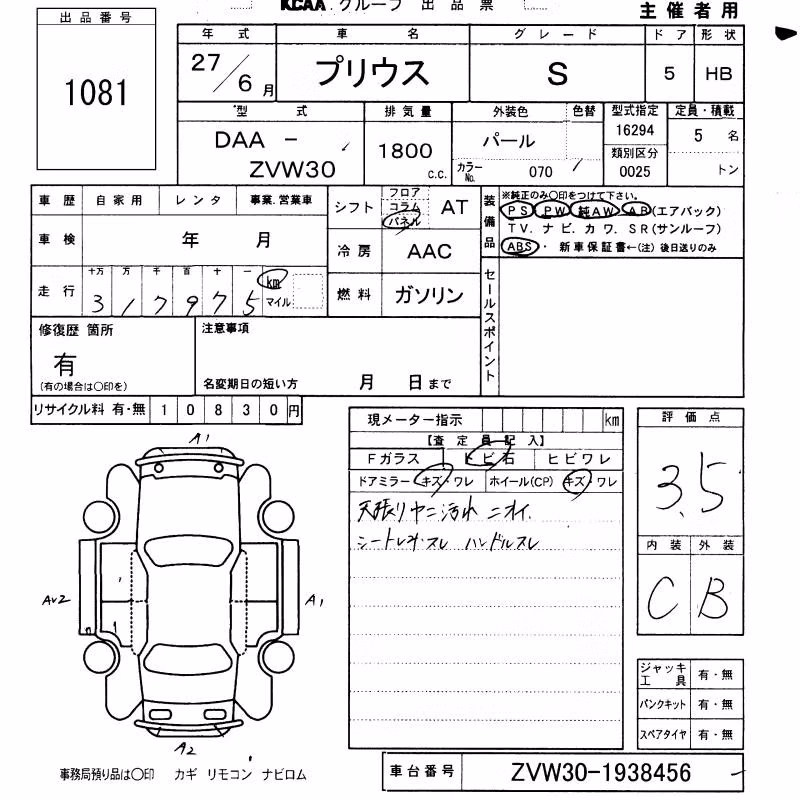 KCAA グループ 出品票
主催者用
出品番号
1081
年式 車名 グレード ドア 形状
27/6月 プリウス S 5 HB
型式 排気量 外装色 色替 型式指定 定員・積載
DAA - ZVW30 1800 c.c. パール 16294 5 名
カラーNo. 070 類別区分 0025 トン
車歴 自家用 レンタ 事業.営業車
車検 年 月
走行 十万 万 千 百 十 一
3 1 7 9 7 5 km マイル
シフト フロア コラム パネル AT
冷房 AAC
燃料 ガソリン
装備品 ※純正のみ〇印をつけて下さい。
PS PW 純AW AB(エアバック)
TV. ナビ. カワ. SR(サンルーフ)
ABS ・ 新車保証書←(注) 後日送りのみ
セールスポイント
修復歴 箇所
有
(有の場合は〇印を)
注意事項
名変期日の短い方 月 日まで
リサイクル料 有・無 10830円
現メーター指示 km
【査定員記入】
Fガラス トビ石 ヒビワレ
ドアミラー キズ・ワレ ホイール(CP) キズ・ワレ
天張りヤニ汚れ ニオイ.
シートレザースレ ハンドルスレ
評価点
3.5
内装 外装
C B
A1
AW2
A1
A2
ジャッキ工具 有・無
パンクキット 有・無
スペアタイヤ 有・無
事務局預り品は〇印 カギ リモコン ナビロム
車台番号 ZVW30-1938456